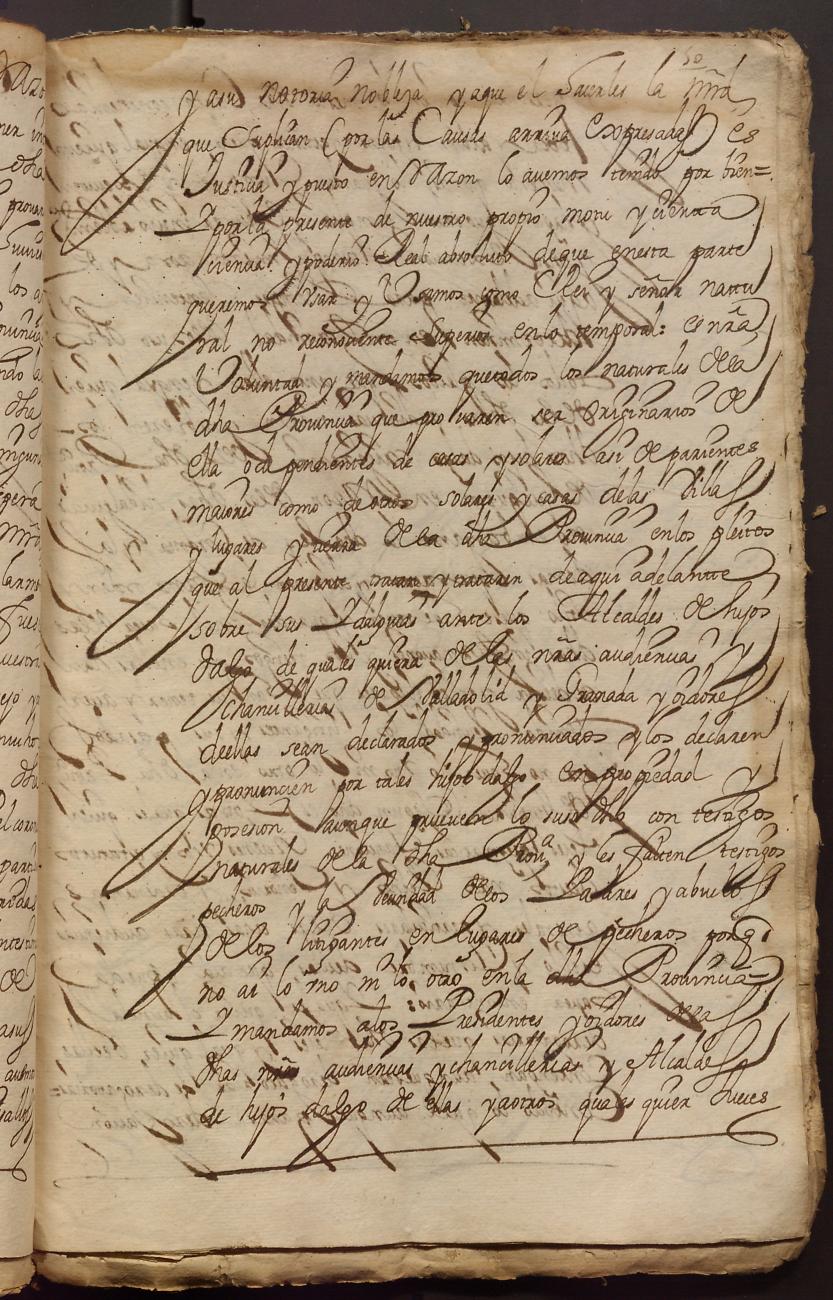 50
y asu notoria nobleza y aque el hacerles la mrd
que suplican (por las Causas arriva expresadas) es
Justicia y puesto en Razon lo avemos tenido por bien=
Y por la presente de nuestro propio motu y cierta
ciencia y poderio Real absoluto de que en esta parte
queremos Usar y Usamos como Rei y señor nattu
ral no reconociente superior en lo temporal: es nra
Voluntad y mandamos que todos los naturales de la
dha Provincia que provaren ser originarios de
ella o dependientes de casas y solares asi de parientes
maiores como de otros solares y casas de las Villas
y lugares y tierra de la dha Provincia en los pleitos
que al presente tratan y trataren de aqui adelantte
sobre sus Ydalguias ante los Alcaldes de hijos
dalgo de quales quiera de las nras audiencias y
chancillerias de Valladolid y Granada y oidores
de ellas sean declarados y pronunciados y los declaren
y pronuncien por tales hijos dalgo en propiedad y
posesion aunque prueven lo suso dho con testigos
naturales de la dha Prova y les falten testigos
pecheros y la Vecindad de los Padres y abuelos
de los litigantes en lugares de pecheros porq
no ai lo uno ni lo otro en la dha Provincia=
Y mandamos a los Presidentes y oidores de las
dhas nras audiencias y chancillerias y Alcaldes
de hijos dalgo de ellas y a otros quales quier Jueces